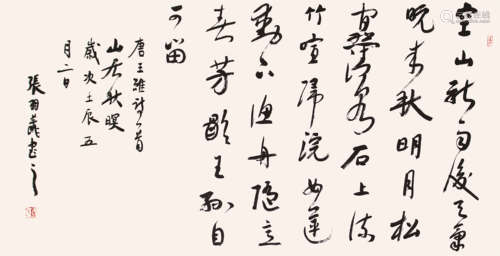 空山新雨後天氣
晚来秋明月松
間照清泉石上流
竹喧歸浣女蓮
動下漁舟隨意
春芳歇王孫自
可留
唐王維詩一首
山居秋暝
歲次壬辰五
月二日
張羽書之